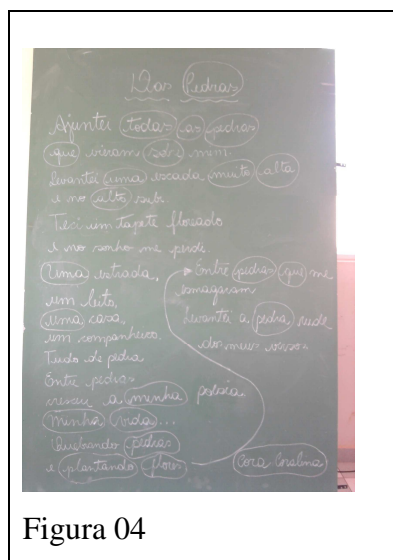 Das Pedras
Ajuntei todas as pedras
que vieram sobre mim.
Levantei uma escada muito alta
e no alto subi.
Teci um tapete floreado
e no sonho me perdi.
Uma estrada,
um leito,
uma casa,
um companheiro.
Tudo de pedra
Entre pedras
cresceu a minha poesia
minha vida...
Quebrando pedras
e plantando flores
Entre pedras que me
esmagaram
Levantei a pedra rude
dos meus versos
Cora Coralina
Figura 04